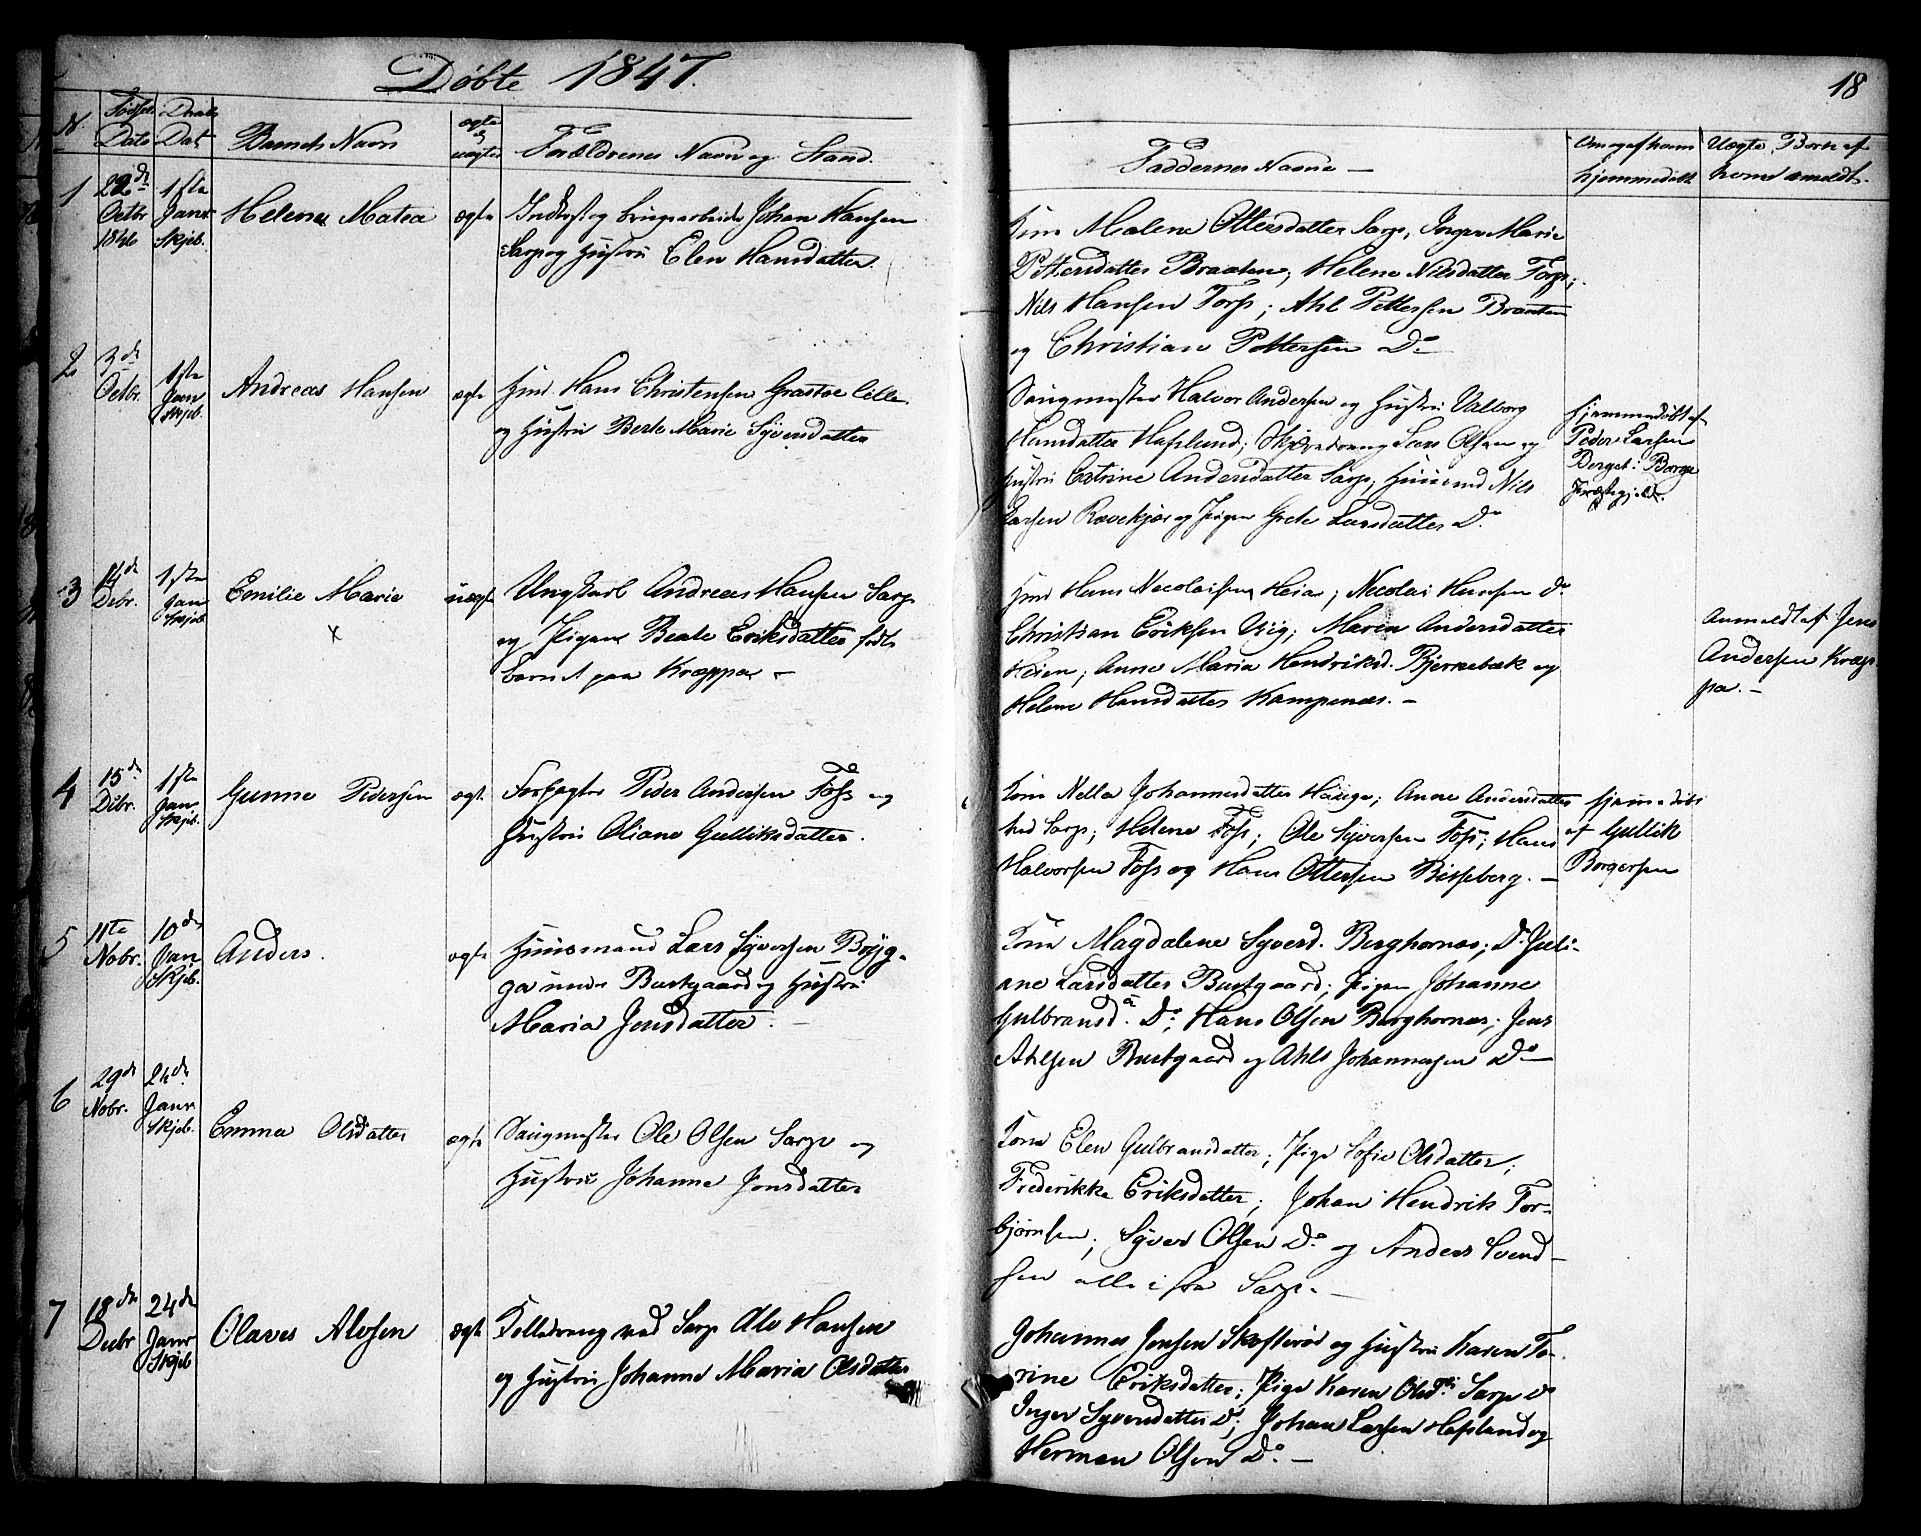 Døbte 1847.
18
N
Fødsels
Dato
Daabs
Dat
Barnets Navn
ægte
el
uægte
Forældrenes Navn og Stand.
Faddernes Navne —
Om og af hvem
hjemmedøbt
Uægte Børn af
hvem anmeldt.
1
22de
Octbr
1846
1ste
Janr
Skjeb.
Helene Matea
ægte
Johan Hansen
Sarp og Hustru Elen Hansdatter.
Kone Malene Ottersdatter Sarp, Inger Marie
Pettersdatter Braaten, Helene Nilsdatter Torp;
Nils Hansen Torp; Ahl Pettersen Braaten
og Christian Pettersen Do
2
3de
Octbr.
1ste
Jan
Skjeb.
Andreas Hansen
ægte
Hmd. Hans Christensen Grastoe lille
og Hustru Berte Marie Syversdatter
Saugmester Halvor Andersen og Hustru Valborg
Hansdatter Hafslund; Lars Olsen og
Hustru Catrine Andersdatter Sarp; Huusmd Nils
Larsen Rævekjær og Pigen Grete Larsdatter Do
Hjemmedøbt af
Peder Larsen
Berget i Borge
Præstegjeld.
3
14de
Debr.
1ste
Jan
Skjeb.
Emilie Marie
x
uægte
Ungkarl Andreas Hansen Sarp
og Pigen Beate Eriksdatter født
barnet paa Krappa. —
Hmd Hans Nicolaisen Heia; Nicolai Hansen Do
Christian Eriksen Viig; Maren Andersdatter
Heien; Anne Maria Hendriksd. Bjørnebæk og
Helene Hansdatter Kampenæs. —
Anmeldt af Jens
Andersen Krap-
pa. —
4
15de
Debr.
1ste
Jan
Skjeb.
Gunne Pedersen
ægte
Forpagter Peder Andersen Foss og
Hustru Oliane Gulliksdatter.
Kone Nella Johannesdatter Hauge; Anne Andersdatter
ved Sarp; Helene Foss; Ole Syversen Foss; Hans
Halvorsen Foss og Hans Ottersen Bisseberg. —
Hjemmedøbt
af Gullik
Borgersen
5
11te
Nobr.
10de
Jan
Skjeb.
Anders.
ægte
Huusmand Lars Syversen Bryg-
ga under Bustgaard og Hustru
Maria Jensdatter. —
Kone Magdalene Syversd. Berghornæs; Do Juli-
ane Larsdatter Bustgaard; Pigen Johanne
Gulbransd. Do; Hans Olsen Berghornæs; Jens
Ahlsen Bustgaard og Ahls Johannesen Do —
6
29de
Nobr.
24de
Janr
Skjeb.
Emma Olsdatter
ægte
Saugmester Ole Olsen Sarp og
Hustru Johanne Jonsdatter
Kone Elen Gulbransdatter; Pige Sofie Olsdatter;
Frederikke Eriksdatter; Johan Hendrik Tor-
bjørnsen; Syver Olsen Do og Anders Svend-
sen alle ifra Sarp. —
7
18de
Debr
24de
Janr
Skjeb
Olaves Alvsen
ægte
ved Sarp Alv Hansen
og Hustru Johanne Maria Olsdatter
Johannes Jensen Skofterød og Hustru Karen To-
rine Eriksdatter; Pige Karen Olsdtr Sarp Do
Inger Syversdatter Do; Johan Larsen Hafslund og
Herman Olsen Do —